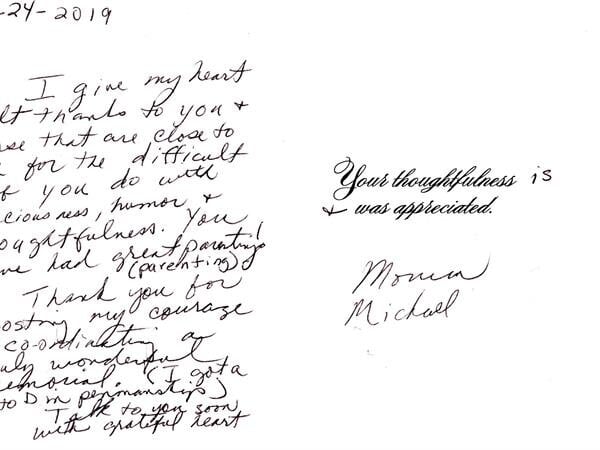 -24-2019
I give my heart
lt thanks to you +
se that are close to
for the difficult
f you do with
ciousness, humor +
oughtfulness. You
ve had great parenting!
(parenting)
Thank you for
osting my courage
co-ordinating a
uly wonderful
emorial. (I got a
to D in penmanship)
Talk to you soon
with grateful heart
Your thoughtfulness is
+ was appreciated.
Michael